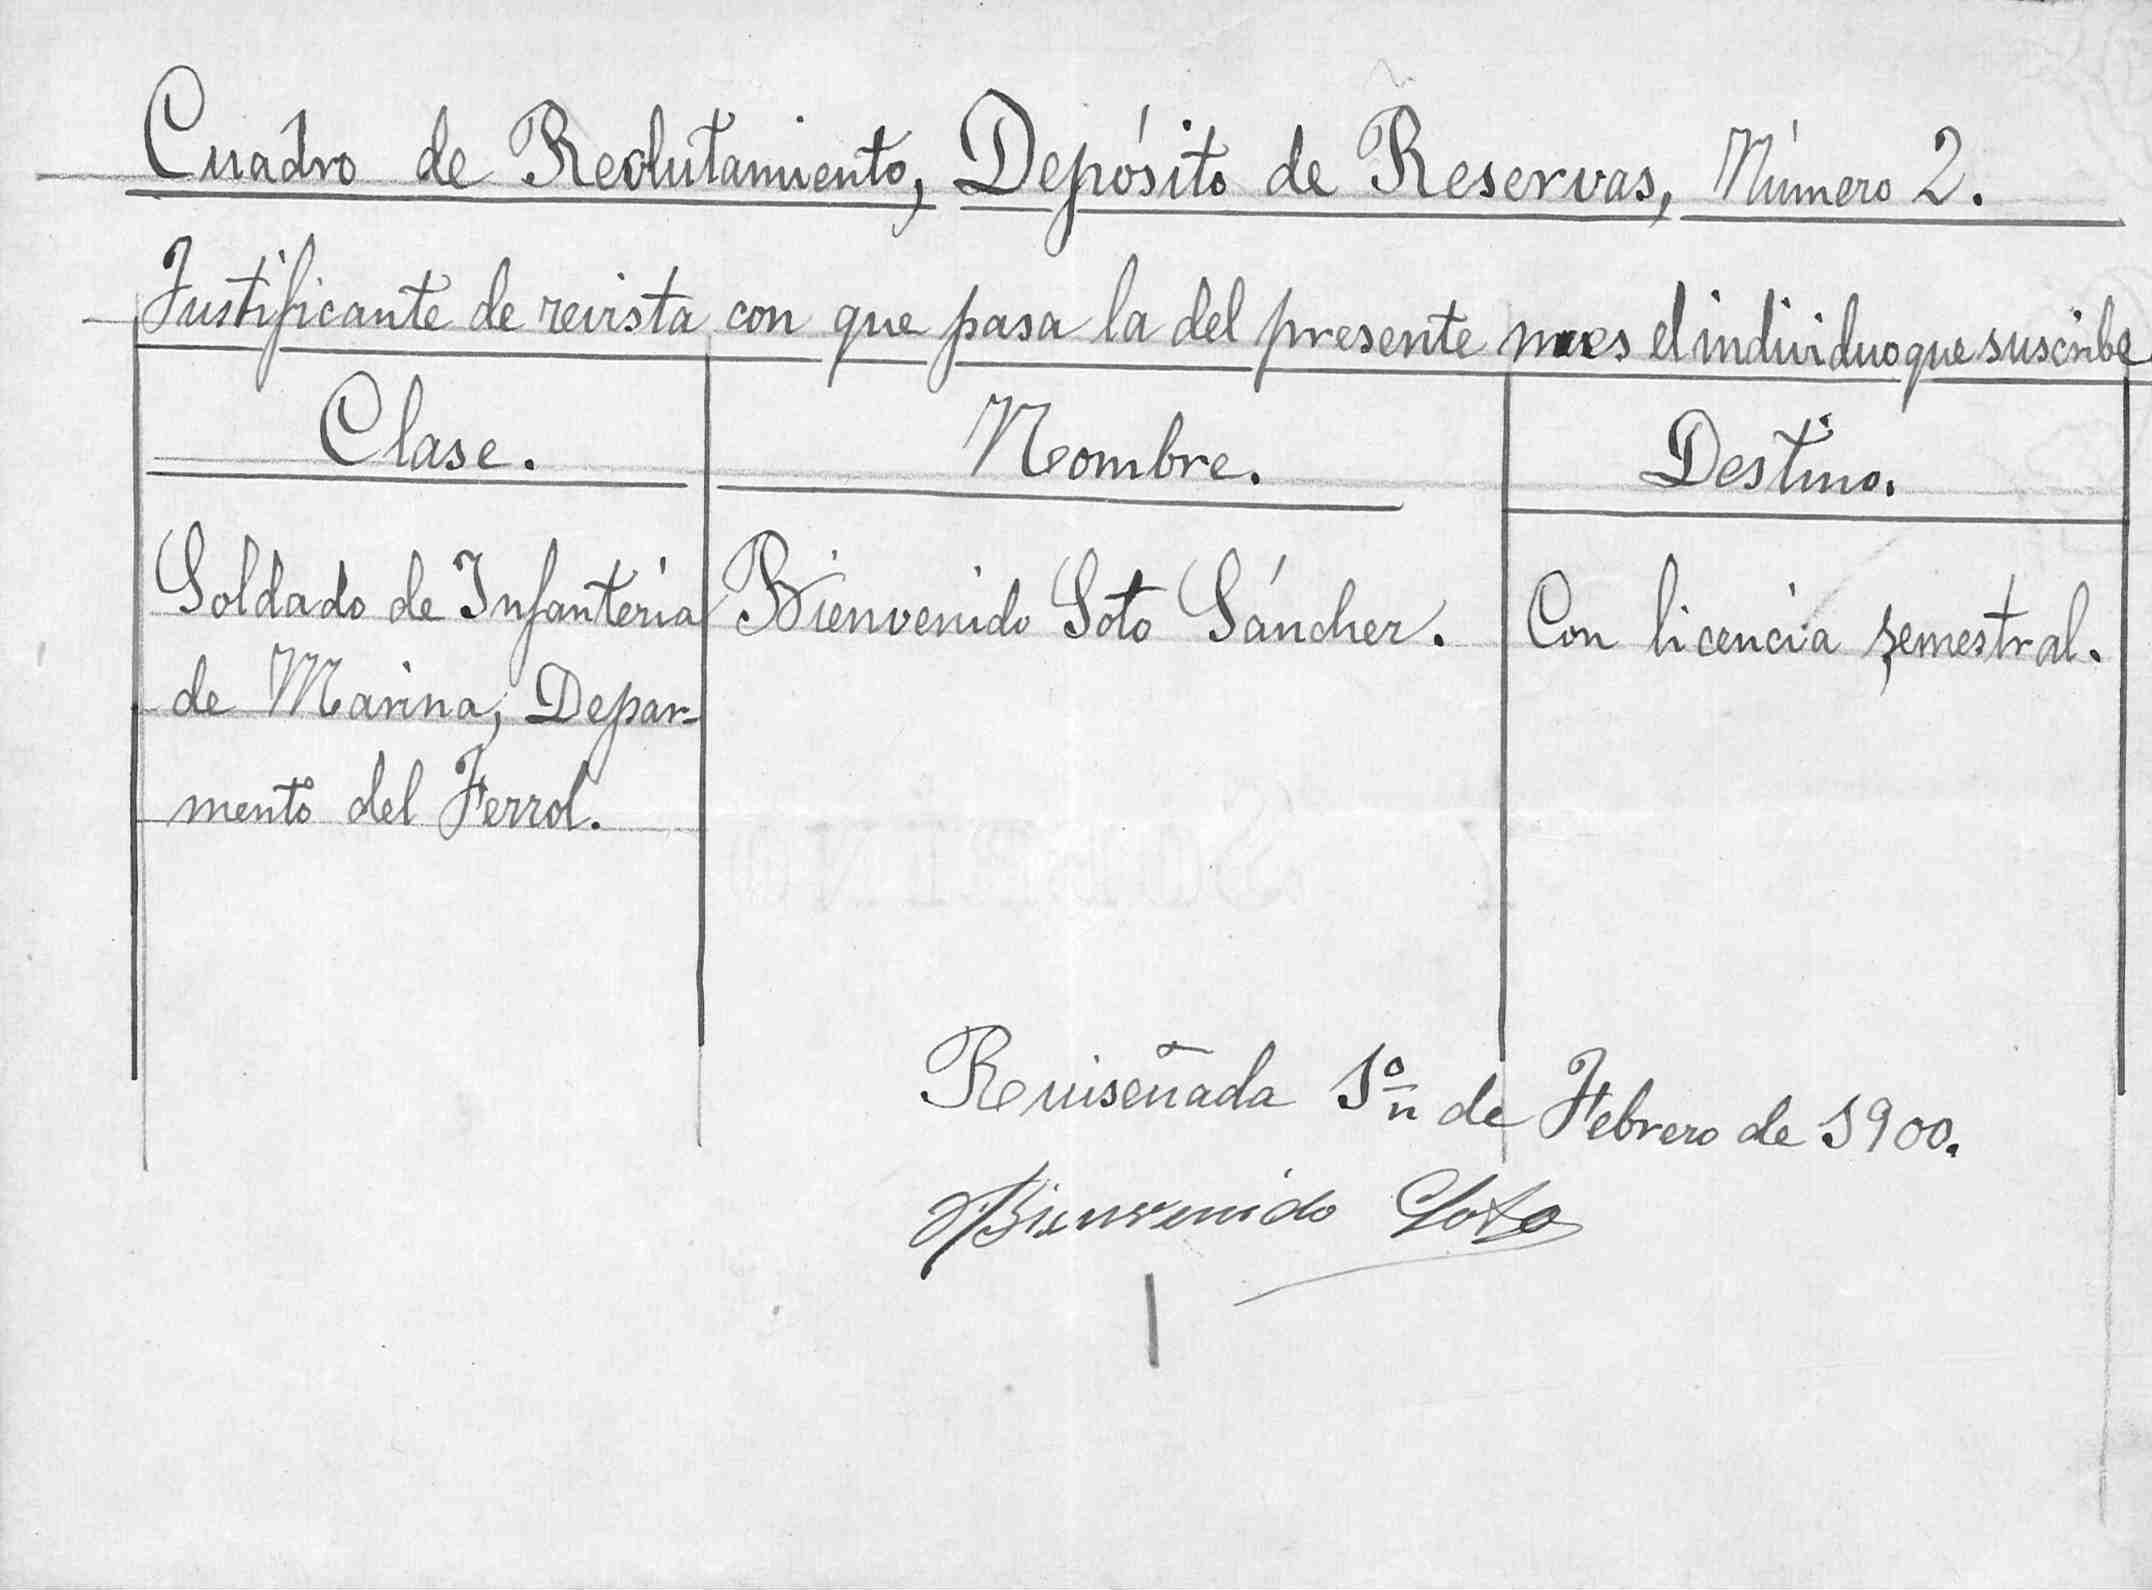 Cuadro de Reclutamiento, Depósito de Reservas, Número 2.
Justificante de revista con que pasa la del presente mes el individuo que suscribe
Clase.
Nombre.
Destino.
Soldado de Infantería
de Marina, Depar-
mento del Ferrol.
Bienvenido Soto Sánchez.
Con licencia semestral.
Ruiseñada 1º de Febrero de 1900.
Bienvenido Soto